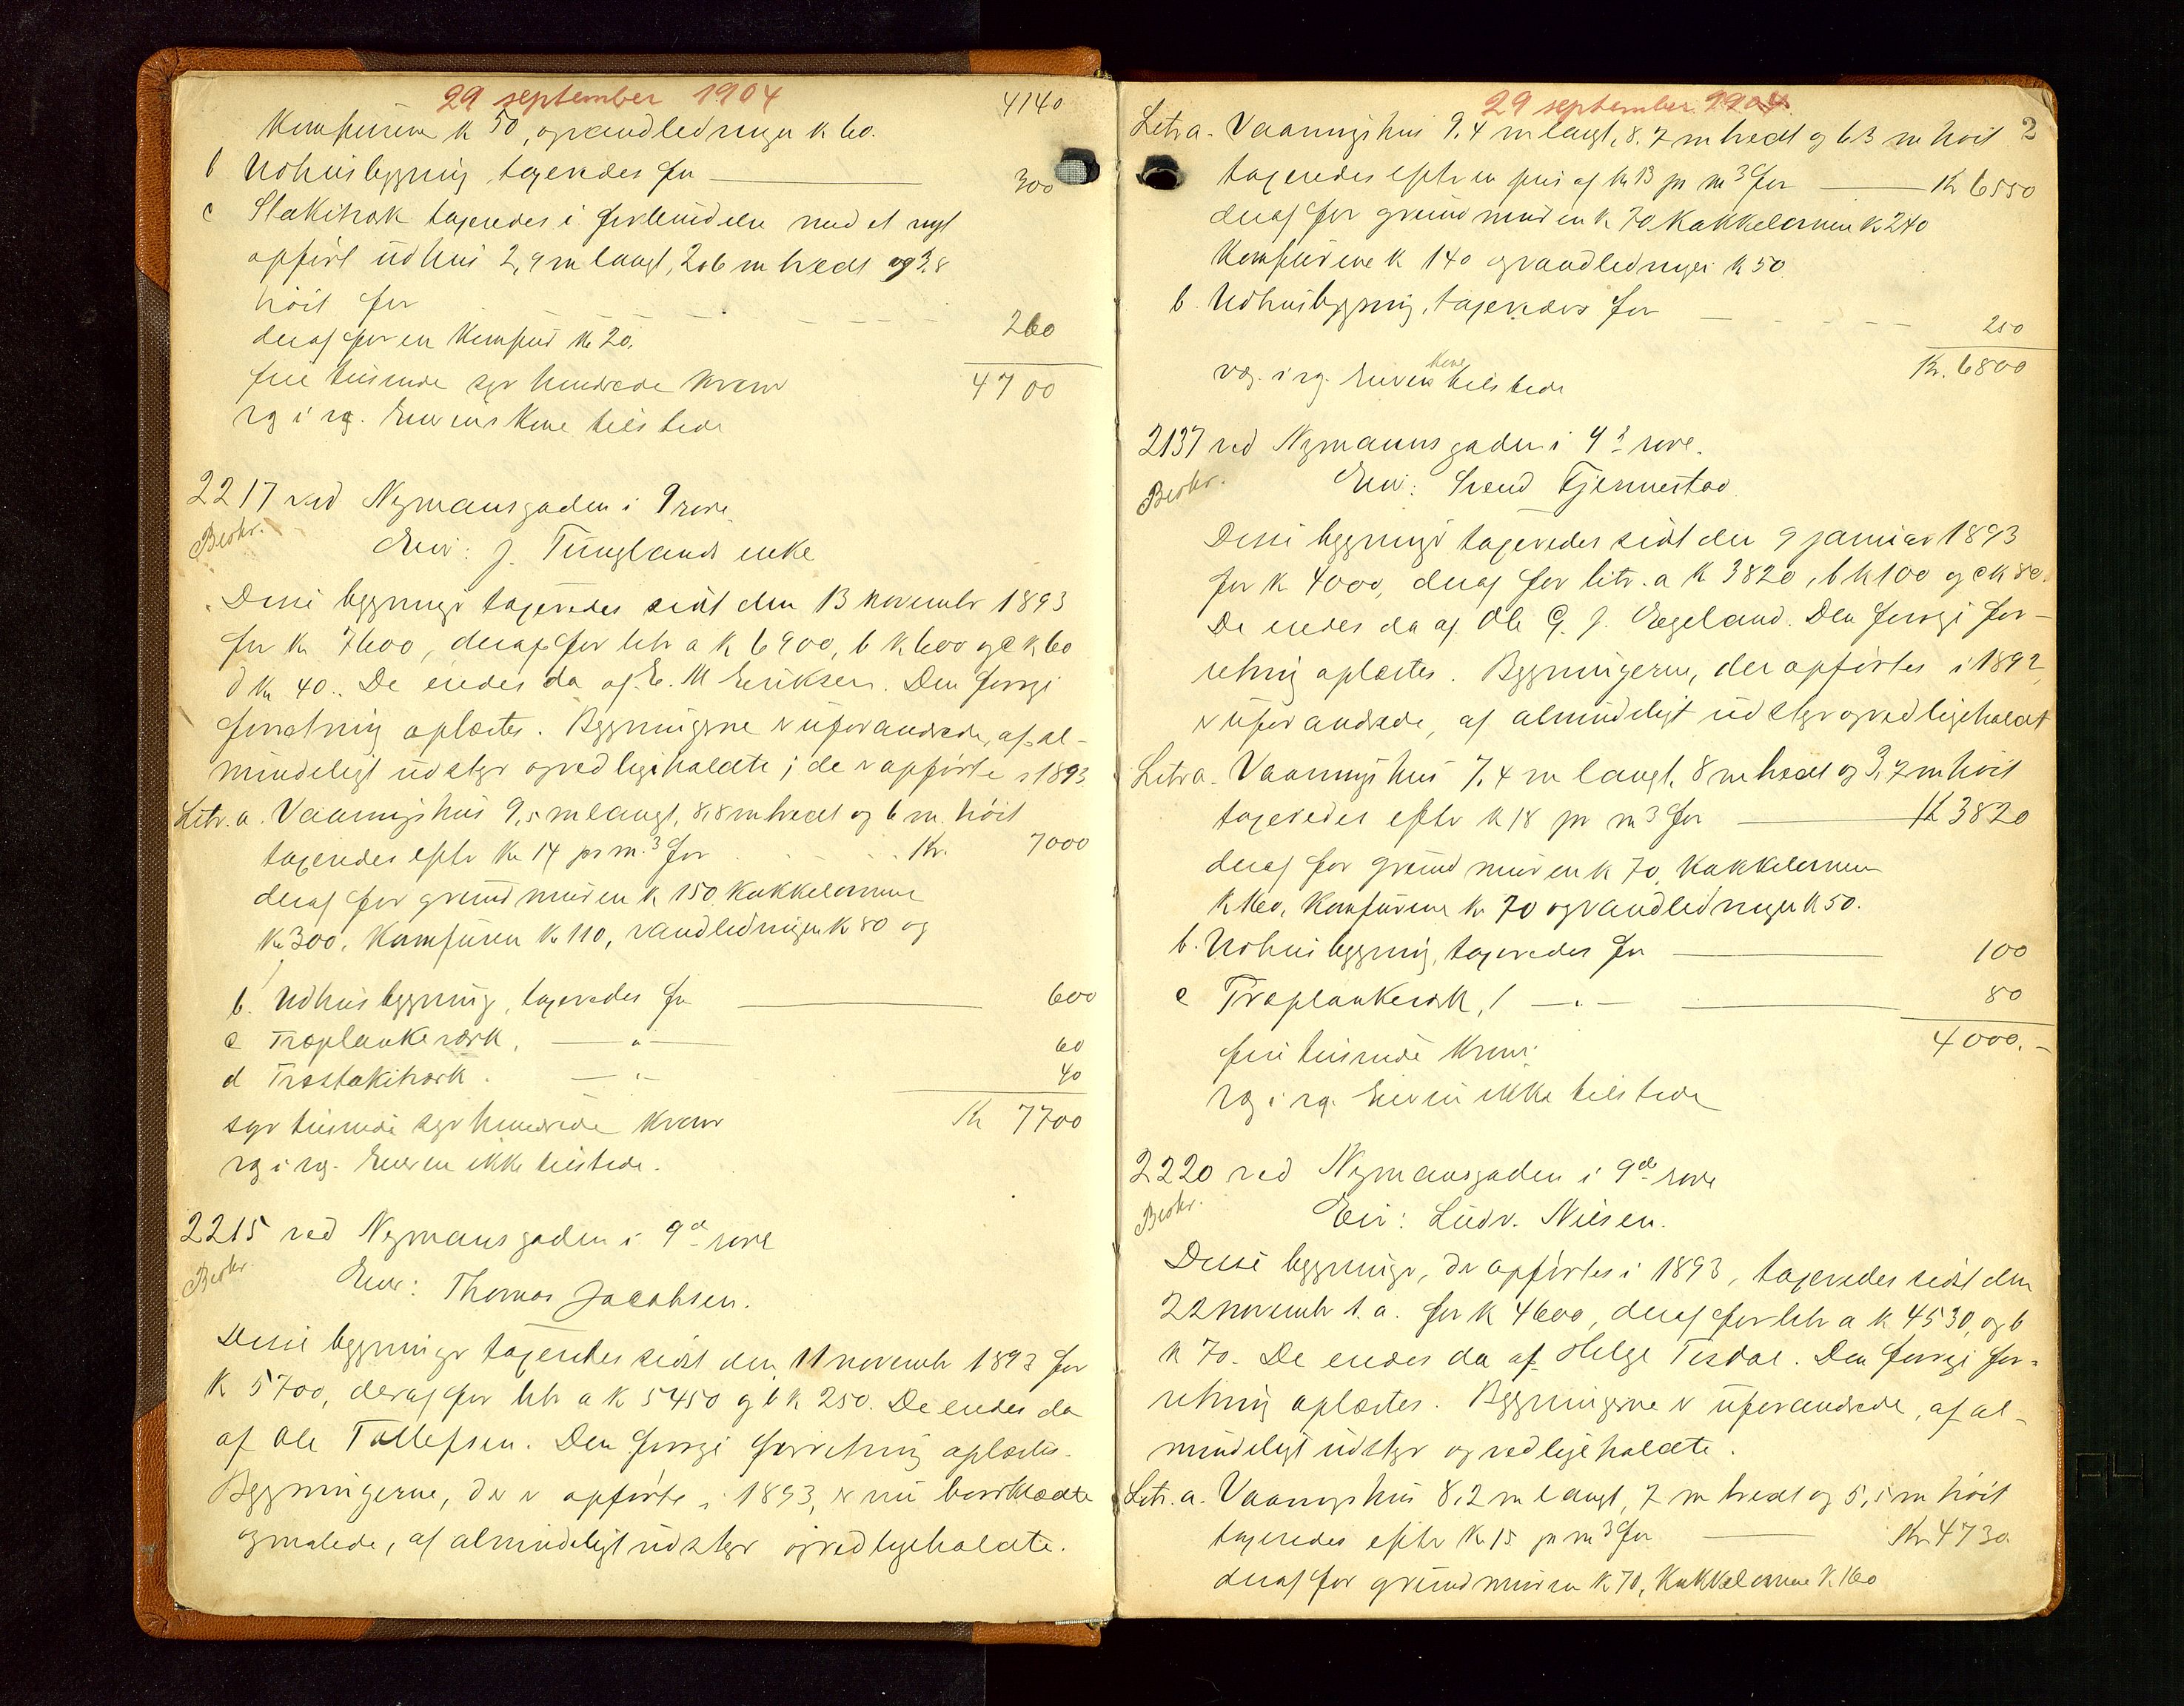 29 september 1904
4140
Komfurene k 50, og vandledningen k 60.
b Udhusbygning, taxeredes for 300
c Stakitværk taxeredes i forbindelse med et nyt
opført udhus 2,9 m langt, 2,6 m bredt og 3.8
höit for
260
deraf for en Komfur Kr 20.
fire tusinde syv hundrede kroner 4700
rg i rg. Eierens Kone tilstede
2217 ved Nymansgaden i 9 rode
Beskr.
Eier: J. Tunglands enke
Disse bygninger taxeredes sidst den 13 november 1893
for Kr 7600, deraf for litr a k 6900, b k 600 og c k 60
d Kr 40. De eiedes da af E. M Eriksen. Den forrige
forretning oplæstes. Bygningerne er uforandrede, af al-
mindeligt udstyr og vedligeholdte; de er opførte i 1893.
Litr. a. Vaaningshus 9,5 m langt, 8,8 m bredt og 6 m. höit
taxeredes efter Kr 14 pr m.3 for Kr. 7000
deraf for grundmuren k 150, Kakkelovnene
Kr 300, Komfuren Kr 110, vandledningen k 80 og
b. Udhusbygning, taxeredes for 600
c Træplankeværk, — " — 60
d Træstakitværk. — " — 40
syv tusinde syv hundrede kroner Kr 7700
rg i rg. Eieren ikke tilstede.
2215 ved Nymansgaden i 9de rode
Beskr.
Eier: Thomas Jacobsen.
Disse bygninger taxeredes sidst den 11 november 1893 for
K 5700, deraf for litr a k 5450 og b k 250. De eiedes da
af Ole Tollefsen. Den forrige forretning oplæstes.
Bygningerne, der er opførte i 1893, er nu bordklædte
og malede, af almindeligt udstyr og vedligeholdte.
29 september 1904.
2
Litr a. Vaaningshus 9,4 m langt, 8.7 m bredt og 6.3 m höit
taxeredes efter en pris af kr 13 pr m3 for Kr 6550
deraf for grundmuren k 70, Kakkelovnen k 240
Komfurene k 140 og vandledningen k 50.
b. Udhusbygning, taxeredes for 250
Kr. 6800
rg. i rg. Eierens Kone tilstede
2137 ved Nymannsgaden i 9de rode.
Beskr.
Eier: Svend Tjennestad
Disse bygninger taxeredes sidst den 9 januar 1893
for k 4000, deraf for litr. a k 3820, b k 100 og c k 80.
De eiedes da af Ole G. J. Egeland. Den forrige for-
retning oplæstes. Bygningerne, der opførtes i 1892,
er uforandrede, af almindeligt udstyr og vedligeholdt
Litr a. Vaaningshus 7,4 m langt, 8 m bredt og 3,7 m höit
taxeredes efter k 18 pr m3 for K 3820
deraf for grundmuren k 70, Kakkelovnen
k 160, Komfurene kr 70 og vandledningen k 50.
b. Udhusbygning, taxeredes for 100
c Træplankeværk, — " — 80
fire tusinde kroner. 4000.-
rg i rg. Eieren ikke tilstede
2220 ved Nymansgaden i 9de rode
Beskr.
Eier: Ludv. Nilsen.
Disse bygninger, der opførtes i 1893, taxeredes sidst den
22 november s. a. for k 4600, deraf for litr a k 4530, og b
k 70. De eiedes da af Helge Tesdal. Den forrige for-
retning oplæstes. Bygningerne er uforandrede, af al-
mindeligt udstyr og vedligeholdte.
Litr. a. Vaaningshus 8,2 m langt, 7 m bredt og 5,5 m höit
taxeredes efter k 15 pr m3 for Kr. 4730.
deraf for grundmuren k 70, Kakkelovnene k 160